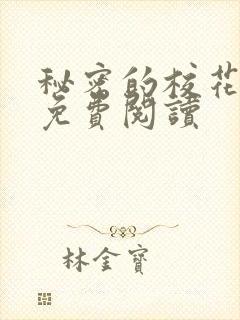 秘密的校花
免費閱讀
林金寶